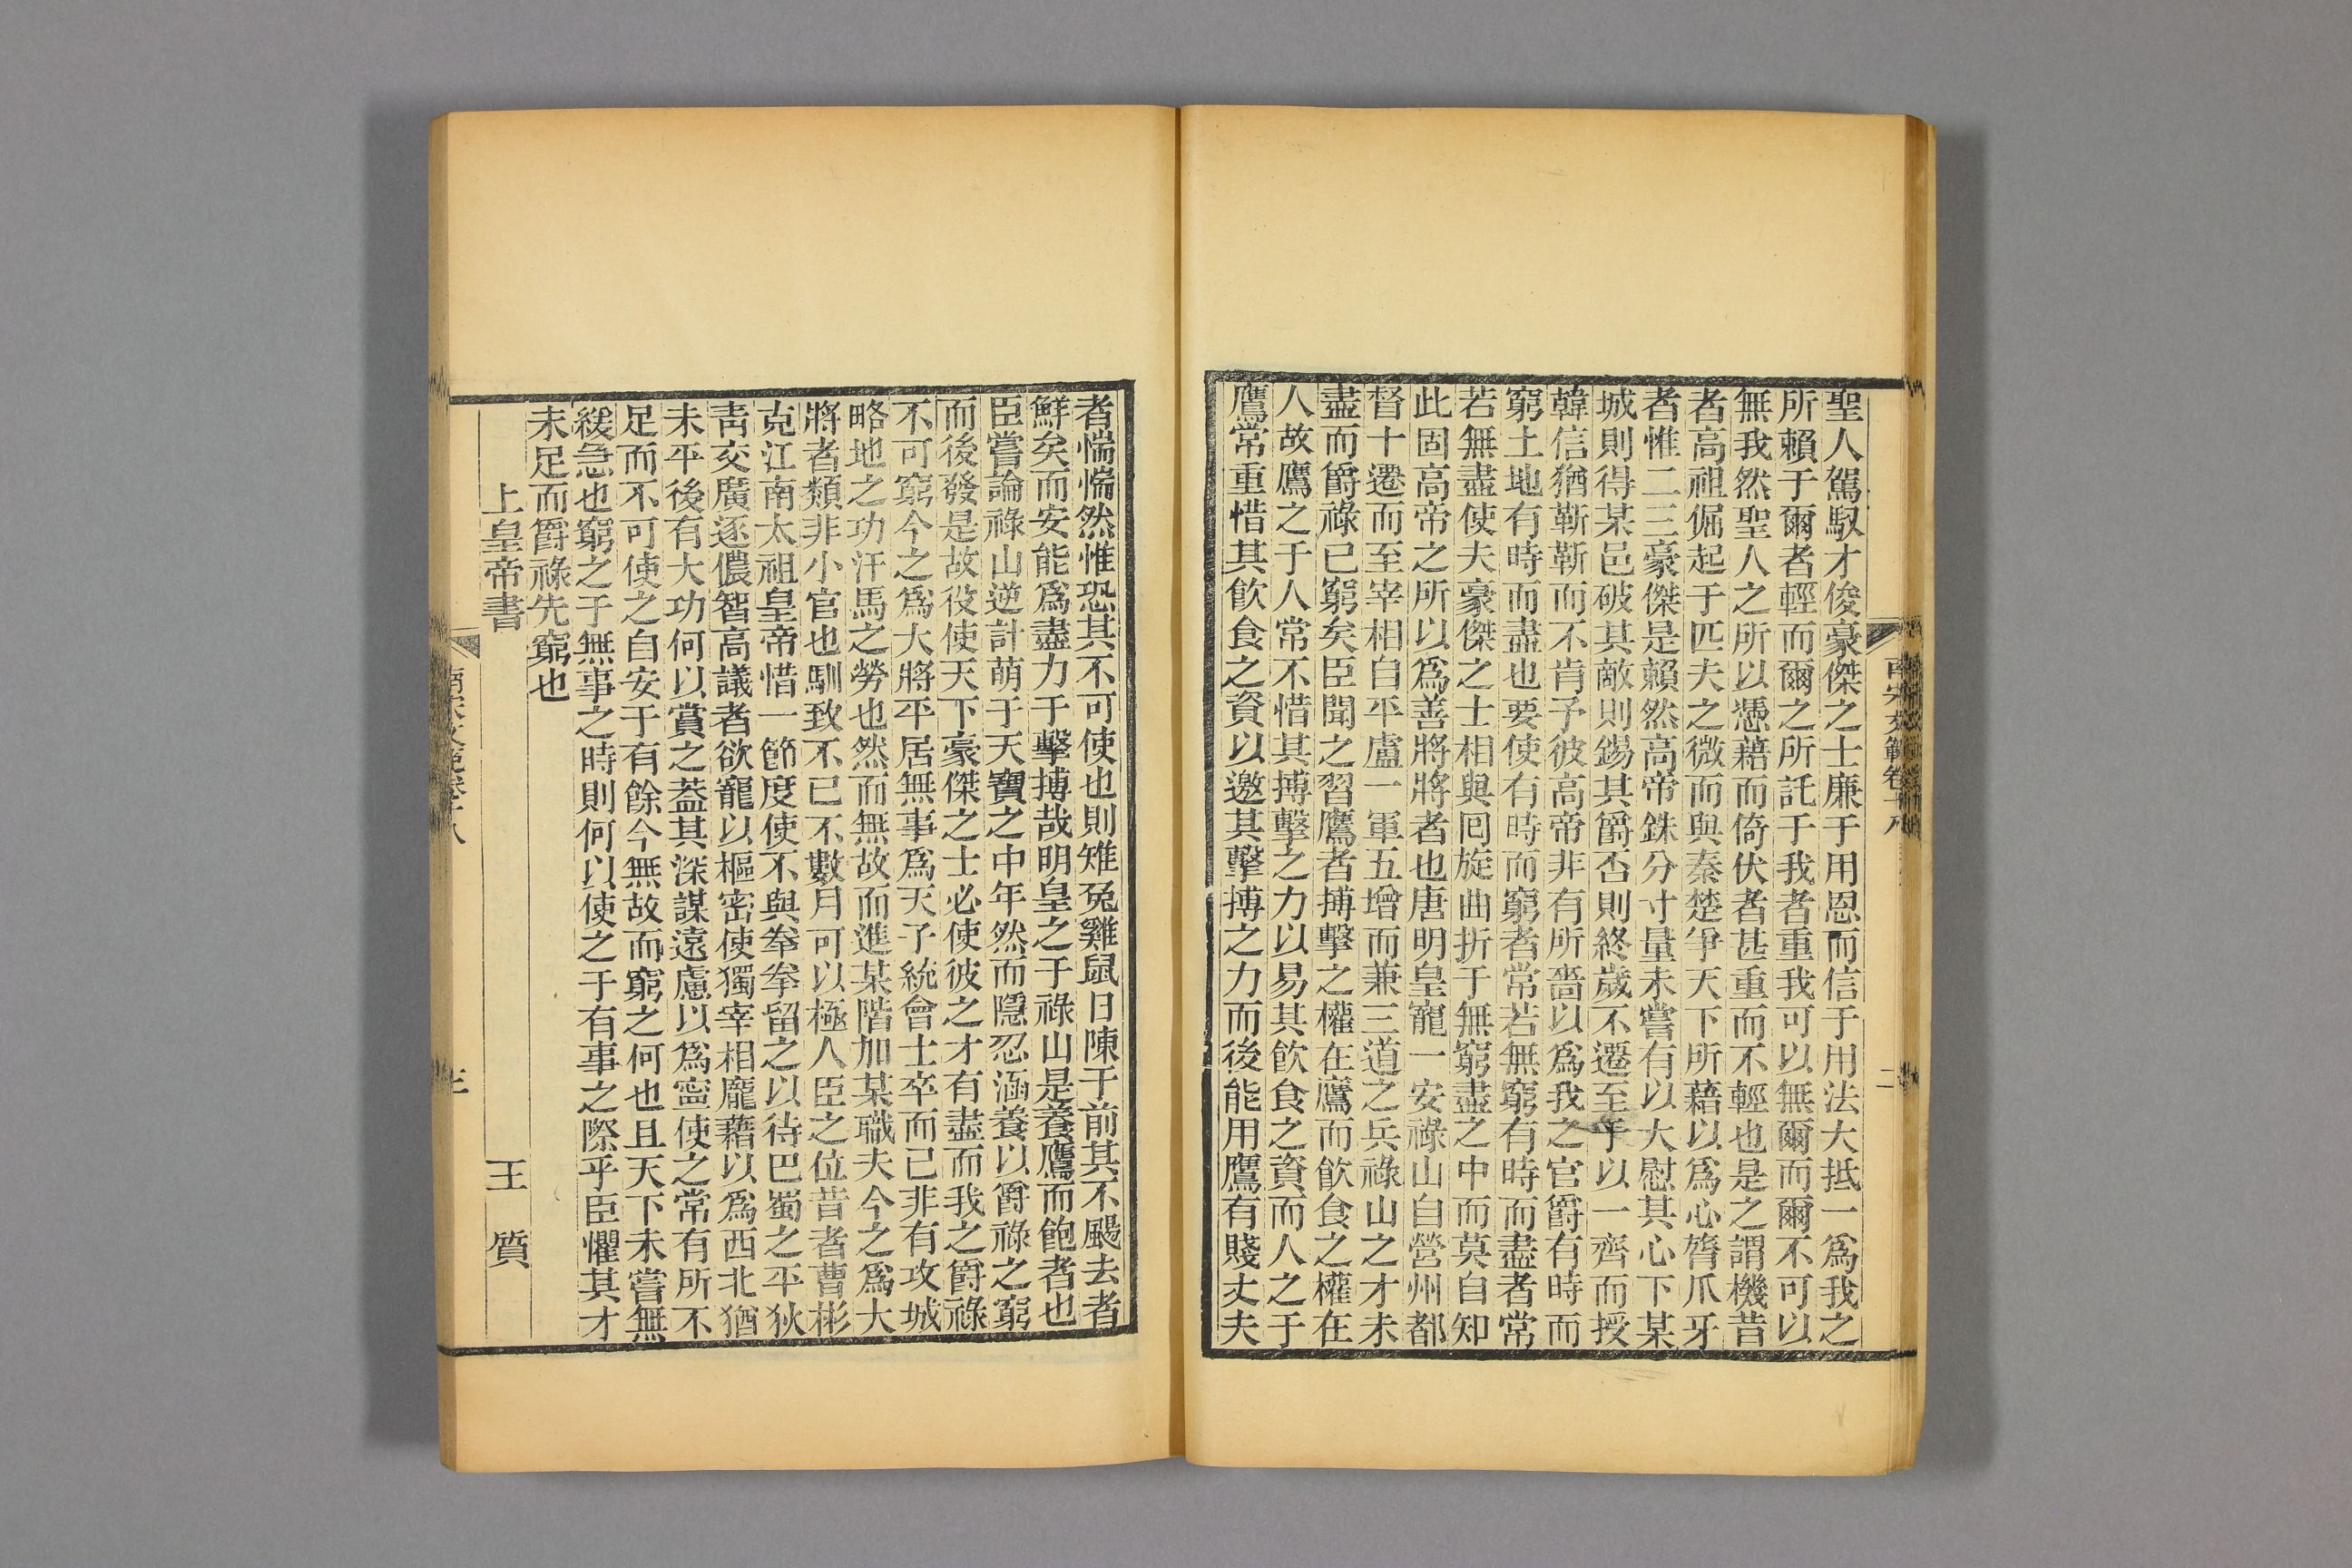 聖人駕馭才俊豪傑之士廉于用恩而信于用法大抵一爲我之
所賴于爾者輕而爾之所託于我者重我可以無爾而爾不可以
無我然聖人之所以憑藉而倚伏者甚重而不輕也是之謂機昔
者高祖倔起于匹夫之微而與秦楚爭天下所藉以爲心膂爪牙
者惟二三豪傑是賴然高帝銖分寸量未嘗有以大慰其心下某
城則得某邑破其敵則錫其爵否則終歲不遷至于以一齊而授
韓信猶靳靳而不肯予彼高帝非有所嗇以爲我之官爵有時而
窮土地有時而盡也要使有時而窮者常若無窮有時而盡者常
若無盡使夫豪傑之士相與回旋曲折于無窮盡之中而莫自知
此固高帝之所以爲善將將者也唐明皇寵一安祿山自營州都
督十遷而至宰相自平盧一軍五增而兼三道之兵祿山之才未
盡而爵祿已窮矣臣聞之習鷹者搏擊之權在鷹而飲食之權在
人故鷹之于人常不惜其搏擊之力以易其飲食之資而人之于
鷹常重惜其飲食之資以邀其擊搏之力而後能用鷹有賤丈夫
南宋文範卷十八
二
者惴惴然惟恐其不可使也則雉兔雞鼠日陳于前其不颺去者
鮮矣而安能爲盡力于擊搏哉明皇之于祿山是養鷹而飽者也
臣嘗論祿山逆計萌于天寶之中年然而隱忍涵養以爵祿之窮
而後發是故役使天下豪傑之士必使彼之才有盡而我之爵祿
不可窮今之爲大將平居無事爲天子統會士卒而已非有攻城
略地之功汗馬之勞也然而無故而進某階加某職夫今之爲大
將者類非小官也馴致不已不數月可以極人臣之位昔者曹彬
克江南太祖皇帝惜一節度使不與拳拳留之以待巴蜀之平狄
靑交廣逐儂智高議者欲寵以樞密使獨宰相龐藉以爲西北猶
未平後有大功何以賞之葢其深謀遠慮以爲寧使之常有所不
足而不可使之自安于有餘今無故而窮之何也且天下未嘗無
緩急也窮之于無事之時則何以使之于有事之際乎臣懼其才
未足而爵祿先窮也
上皇帝書 王 質
南宋文範卷十八
三